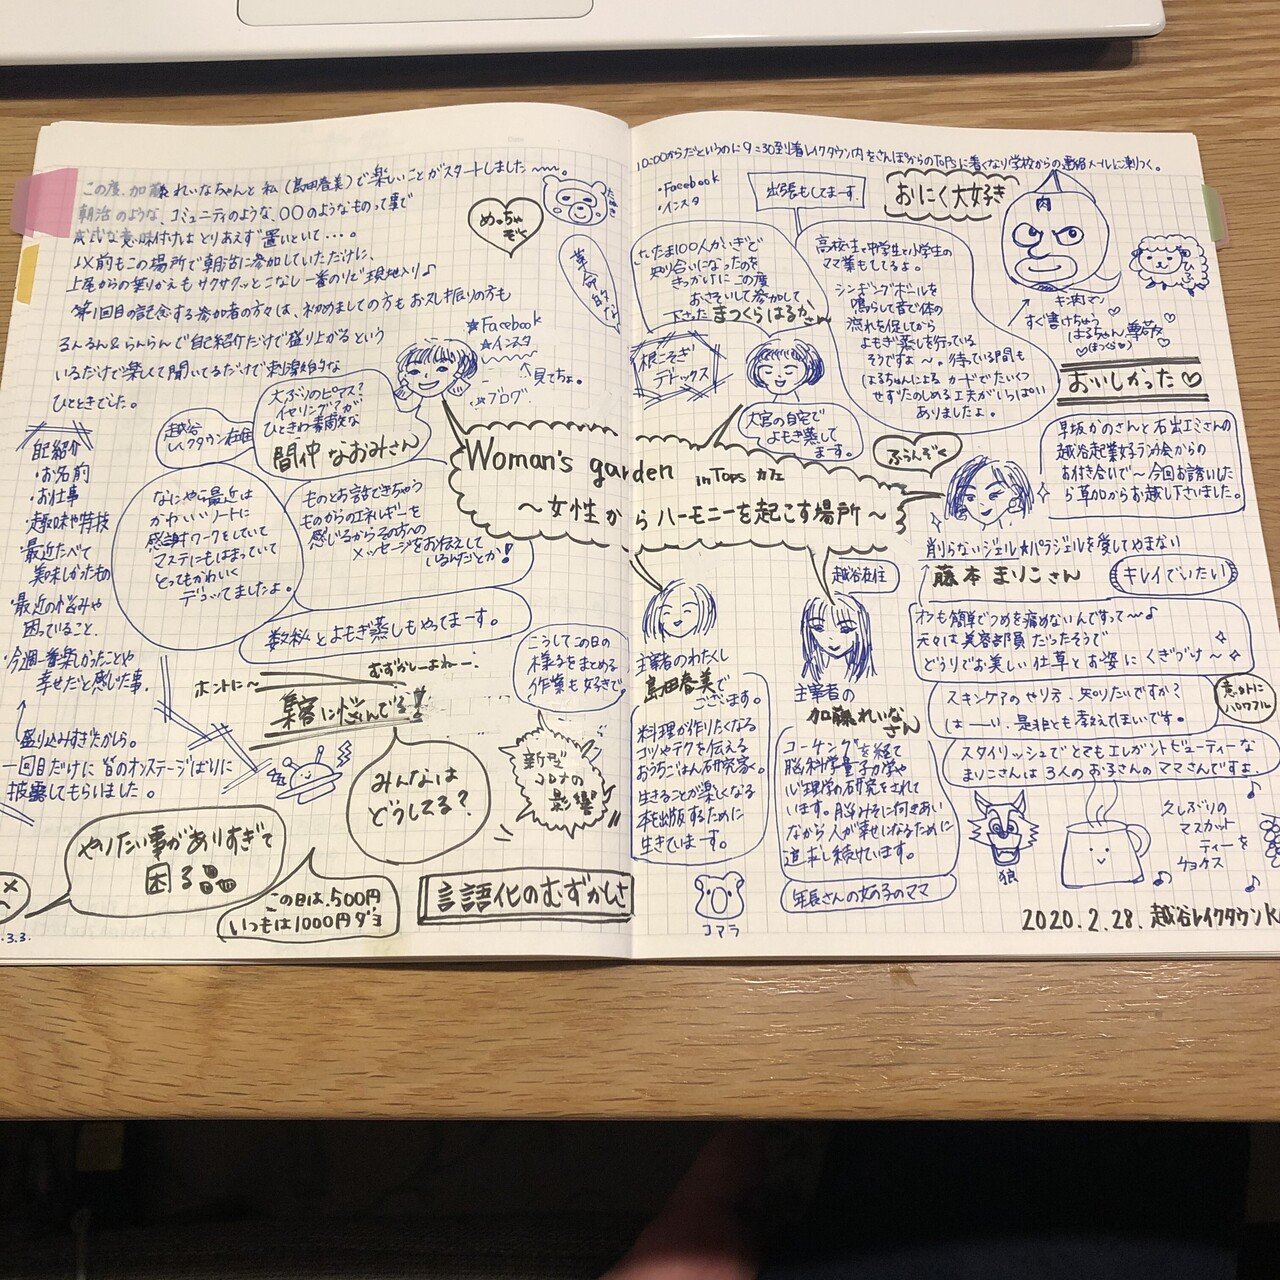 この度、加藤れいなちゃんと私(島田春美)で楽しいことがスタートしました〜〜。
朝活のような、コミュニティのような、〇〇のようなものって事で
意味付けはとりあえず置いといて・・・。
以前もこの場所で朝活に参加していただけに、
上尾からの乗りかえもサクサクッとこなし一番のりで現地入り♪
第1回目の記念する参加者の方々は、初めましての方もお久し振りの方も
るんるん&らんらんで自己紹介だけで盛り上がるという
いるだけで楽しくて聞いてるだけで刺激的な
ひとときでした。
めっちゃ
ぞく
たぬき
革命的な
★Facebook
★インスタ
↑見てちょ。
☆ブログ
大ぶりのピアス?
イヤリング?が
ひときわ素敵な
間仲なおみさん
越谷
レイクタウン在住
自己紹介
・お名前
・お仕事
・趣味や特技
・最近たべて
美味しかったもの
・最近の悩みや
困っていること、
・今週一番楽しかったことや
幸せだと感じた事、
盛り込みすぎたから。
一回目だけに皆のオンステージばりに
披露してもらいました。
なにやら最近は
かわいいノートに
感謝ワークをしていて
マステにもはまっていて
とってもかわいく
デコッてましたよ。
ものとお話できちゃう
ものからのエネルギーを
感じるからその方への
メッセージをお伝えして
いるんだとか!
数秘とよもぎ蒸しもやってまーす。
ホントに〜
むずかしーよねー
集客に悩んでる!!
みんなは
どうしてる?
こうしてこの日の
様子をまとめる
作業も好きで。
新型
コロナの
影響
やりたい事がありすぎて
困る
この日は、500円
いつもは1000円ダヨ
言語化のむずかしさ
.3.3.
Woman's garden in Tops カフェ
〜女性からハーモニーを起こす場所〜
10:00からだというのに9:30到着レイクタウン内をさんぽからのTopsに着くなり学校からの連絡メールに刺つく。
・Facebook
・インスタ
出張もしてます。
おにく大好き
肉
キン肉マン
すぐ書けちゃう
はるちゃん尊敬
(まつくら)
ひつじ
さいたま100人かいぎで
知り合いになったのを
きっかけにこの度
おさそいして参加して
下さったまつくらはるかさん
根こそぎ
デトックス
大宮の自宅で
よもぎ蒸して
ます。
高校生と中学生と小学生の
ママ業もしてるよ。
シンギングボールを
鳴らして音で体の
流れを促してから
よもぎ蒸しを行っている
そうですよ〜。待っている間も
はるちゃんによるカードでたいくつ
せずたのしめる工夫がいっぱい
ありましたよ。
おいしかった♡
ふらんぞく
早坂かのさんと石出エミさんの
越谷起業女子ランチ会からの
お付き合いで〜今回お誘いした
ら草加からお越し下さいました。
削らないジェル★パラジェルを愛してやまない
藤本まりこさん
キレイでいたい
オフも簡単でつめを痛めないんですって〜♪
元々は美容部員だったそうで
どうりでお美しい仕草とお姿にくぎづけ〜
スキンケアのやり方、知りたいですか?
はーい、是非とも教えてほしいです。
意外に
パワフル
スタイリッシュでとてもエレガントビューティーな
まりこさんは3人のお子さんのママさんですよ。
越谷在住
主宰者のわたくし
島田春美で
ございます。
料理が作りたくなる
コツやテクを伝える
おうちごはん研究家。
生きることが楽しくなる
本を出版するために
生きていまーす。
主宰者の
加藤れいなさん
コーチングを経て
脳科学量子力学や
心理学の研究をされて
います。脳みそに向きあい
ながら人が幸せになるために
追求し続けています。
年長さんの女の子のママ
コアラ
狼
久しぶりの
マスカット
ティーを
チョイス
2020.2.28. 越谷レイクタウンK